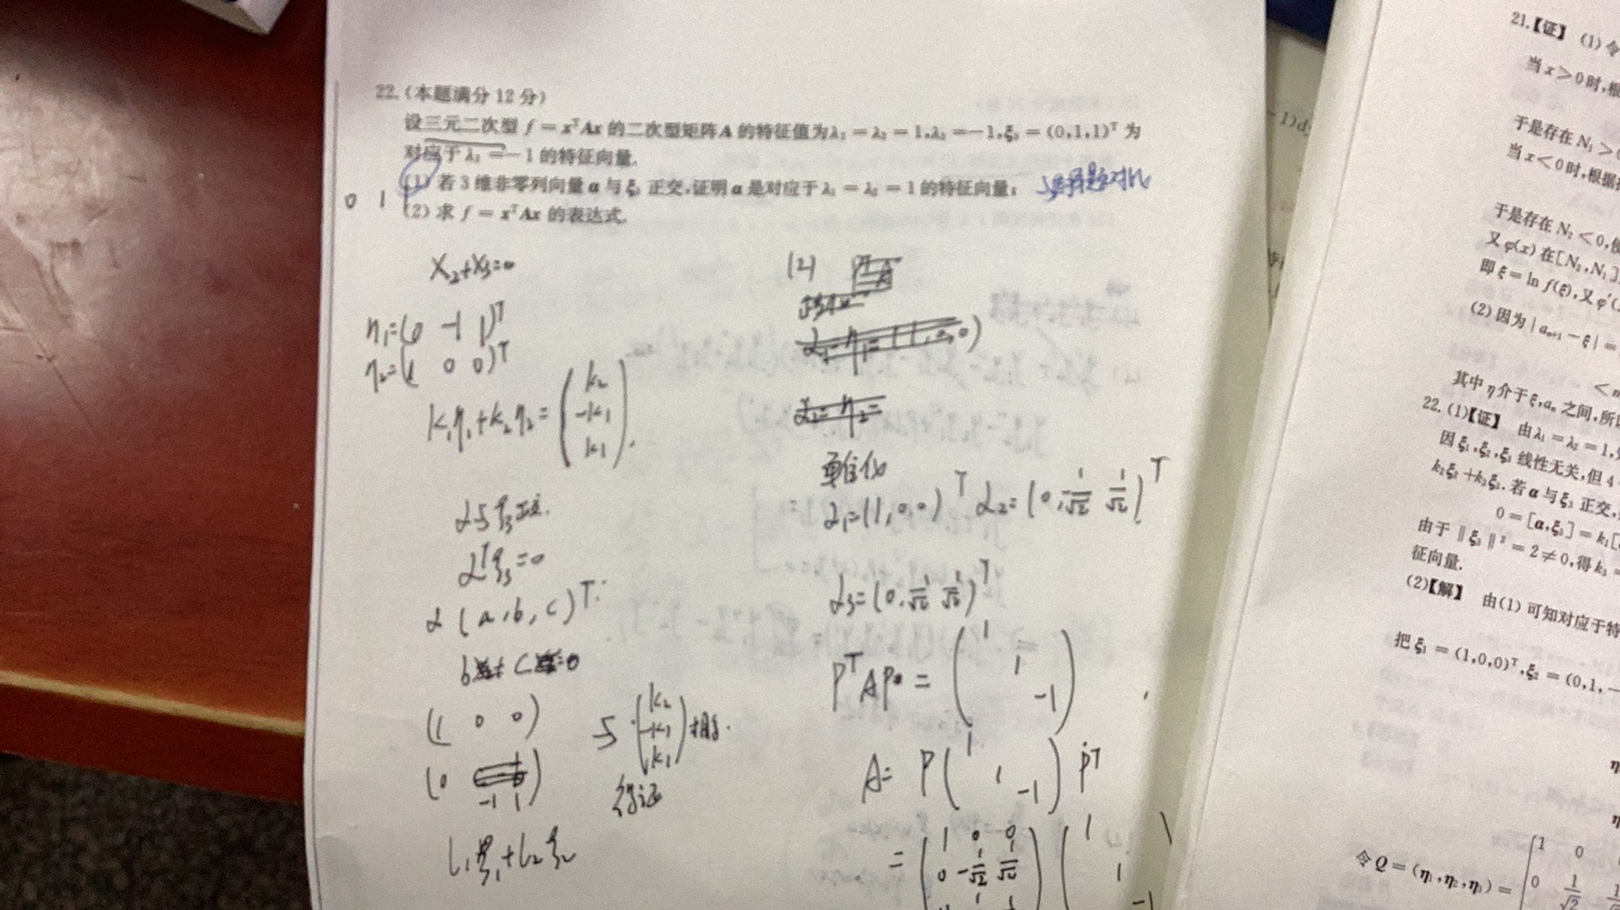 22.(本题满分12分)
设三元二次型 f = xᵀAx 的二次型矩阵A的特征值为λ₁ = λ₂ = 1,λ₃ = -1,ξ₃ = (0,1,1)ᵀ 为
对应于 λ₃ = -1 的特征向量.
(1) 若3维非零列向量 α 与 ξ₃ 正交,证明 α 是对应于 λ₁ = λ₂ = 1 的特征向量;
0 1 (2) 求 f = xᵀAx 的表达式.
X₂+X₃=0
η₁=(0 -1 1)ᵀ
η₂=(1 0 0)ᵀ
k₁η₁+k₂η₂=(k₂ -k₁ k₁).
α与ξ₃正交.
αᵀξ₃=0
α(a,b,c)ᵀ.
(1 0 0)
与(k₂ -k₁ k₁)
(0 -1 1)
得证
l₁ξ₁+l₂ξ₂
(2)
α₂=η₂=
单位化
α₁=(1,0,0)ᵀ α₂=(0,-1/√2 1/√2)ᵀ
α₃=(0,1/√2 1/√2)ᵀ
PᵀAP=(1 1 -1)
A=P(1 1 -1)Pᵀ
=(1 0 0
0 -1/√2 1/√2
)(1 1 -1
21.【证】 (1) 令
当 x>0时,根
-1)d
于是存在 N₁>
当 x<0时,根据
于是存在 N₂<0,使
又 φ(x) 在[N₂,N₁]
即 ξ=ln f(ξ),又 φ'(
(2) 因为 | aₙ₊₁ - ξ | =
其中 η 介于 ξ,aₙ 之间,所以
22.(1)【证】 由 λ₁ = λ₂ = 1,
因 ξ₁,ξ₂,ξ₃ 线性无关,但4
k₂ξ₂+k₃ξ₃.若 α 与 ξ₃ 正交,
0=[α,ξ₃]=k₁[
由于 ‖ξ₃‖² = 2 ≠ 0,得 k₃ =
征向量.
(2)【解】 由(1)可知对应于特
把 ξ₁ = (1,0,0)ᵀ,ξ₂ = (0,1,-
令 Q = (η₁,η₂,η₃) = [1 0
0 1/√2